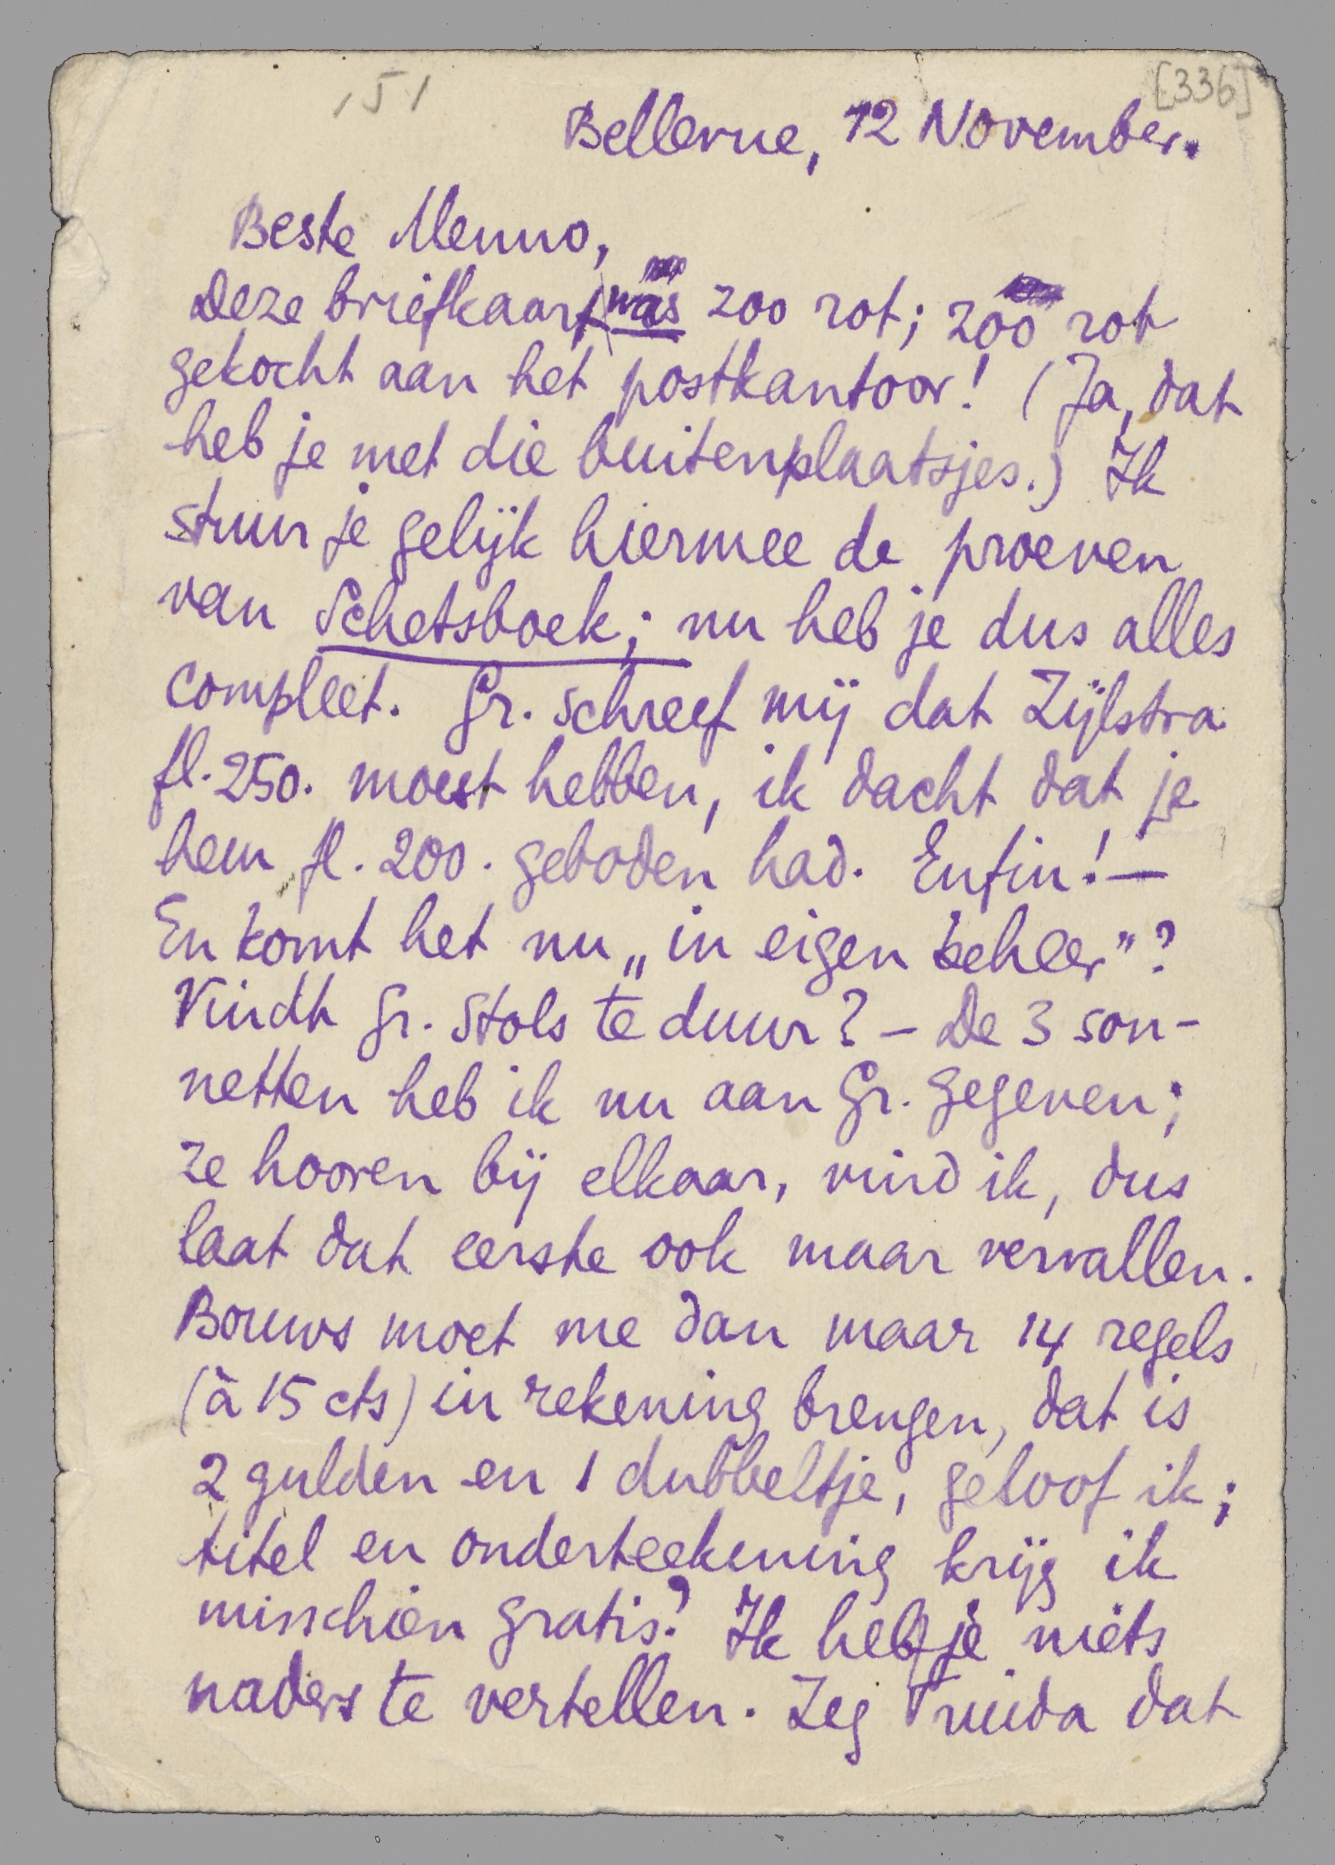 ,51
[336]
Bellevue, 12 November.
Beste Menno,
Deze briefkaart was zoo rot; zoo rot
gekocht aan het postkantoor! (Ja, dat
heb je met die buitenplaatsjes.) Ik
stuur je gelijk hiermee de proeven
van Schetsboek; nu heb je dus alles
compleet. Gr. schreef mij dat Zijlstra
fl. 250. moest hebben, ik dacht dat je
hem fl. 200. geboden had. Enfin! —
En komt het nu „in eigen beheer”?
Vindt Gr. Stols te duur? — De 3 son-
netten heb ik nu aan Gr. gegeven;
ze hooren bij elkaar, vind ik, dus
laat dat eerste ook maar vervallen.
Bouws moet me dan maar 14 regels
(à 15 cts) in rekening brengen, dat is
2 gulden en 1 dubbeltje, geloof ik;
titel en onderteekening krijg ik
misschien gratis? Ik heb je niets
naders te vertellen. Zeg Truida dat